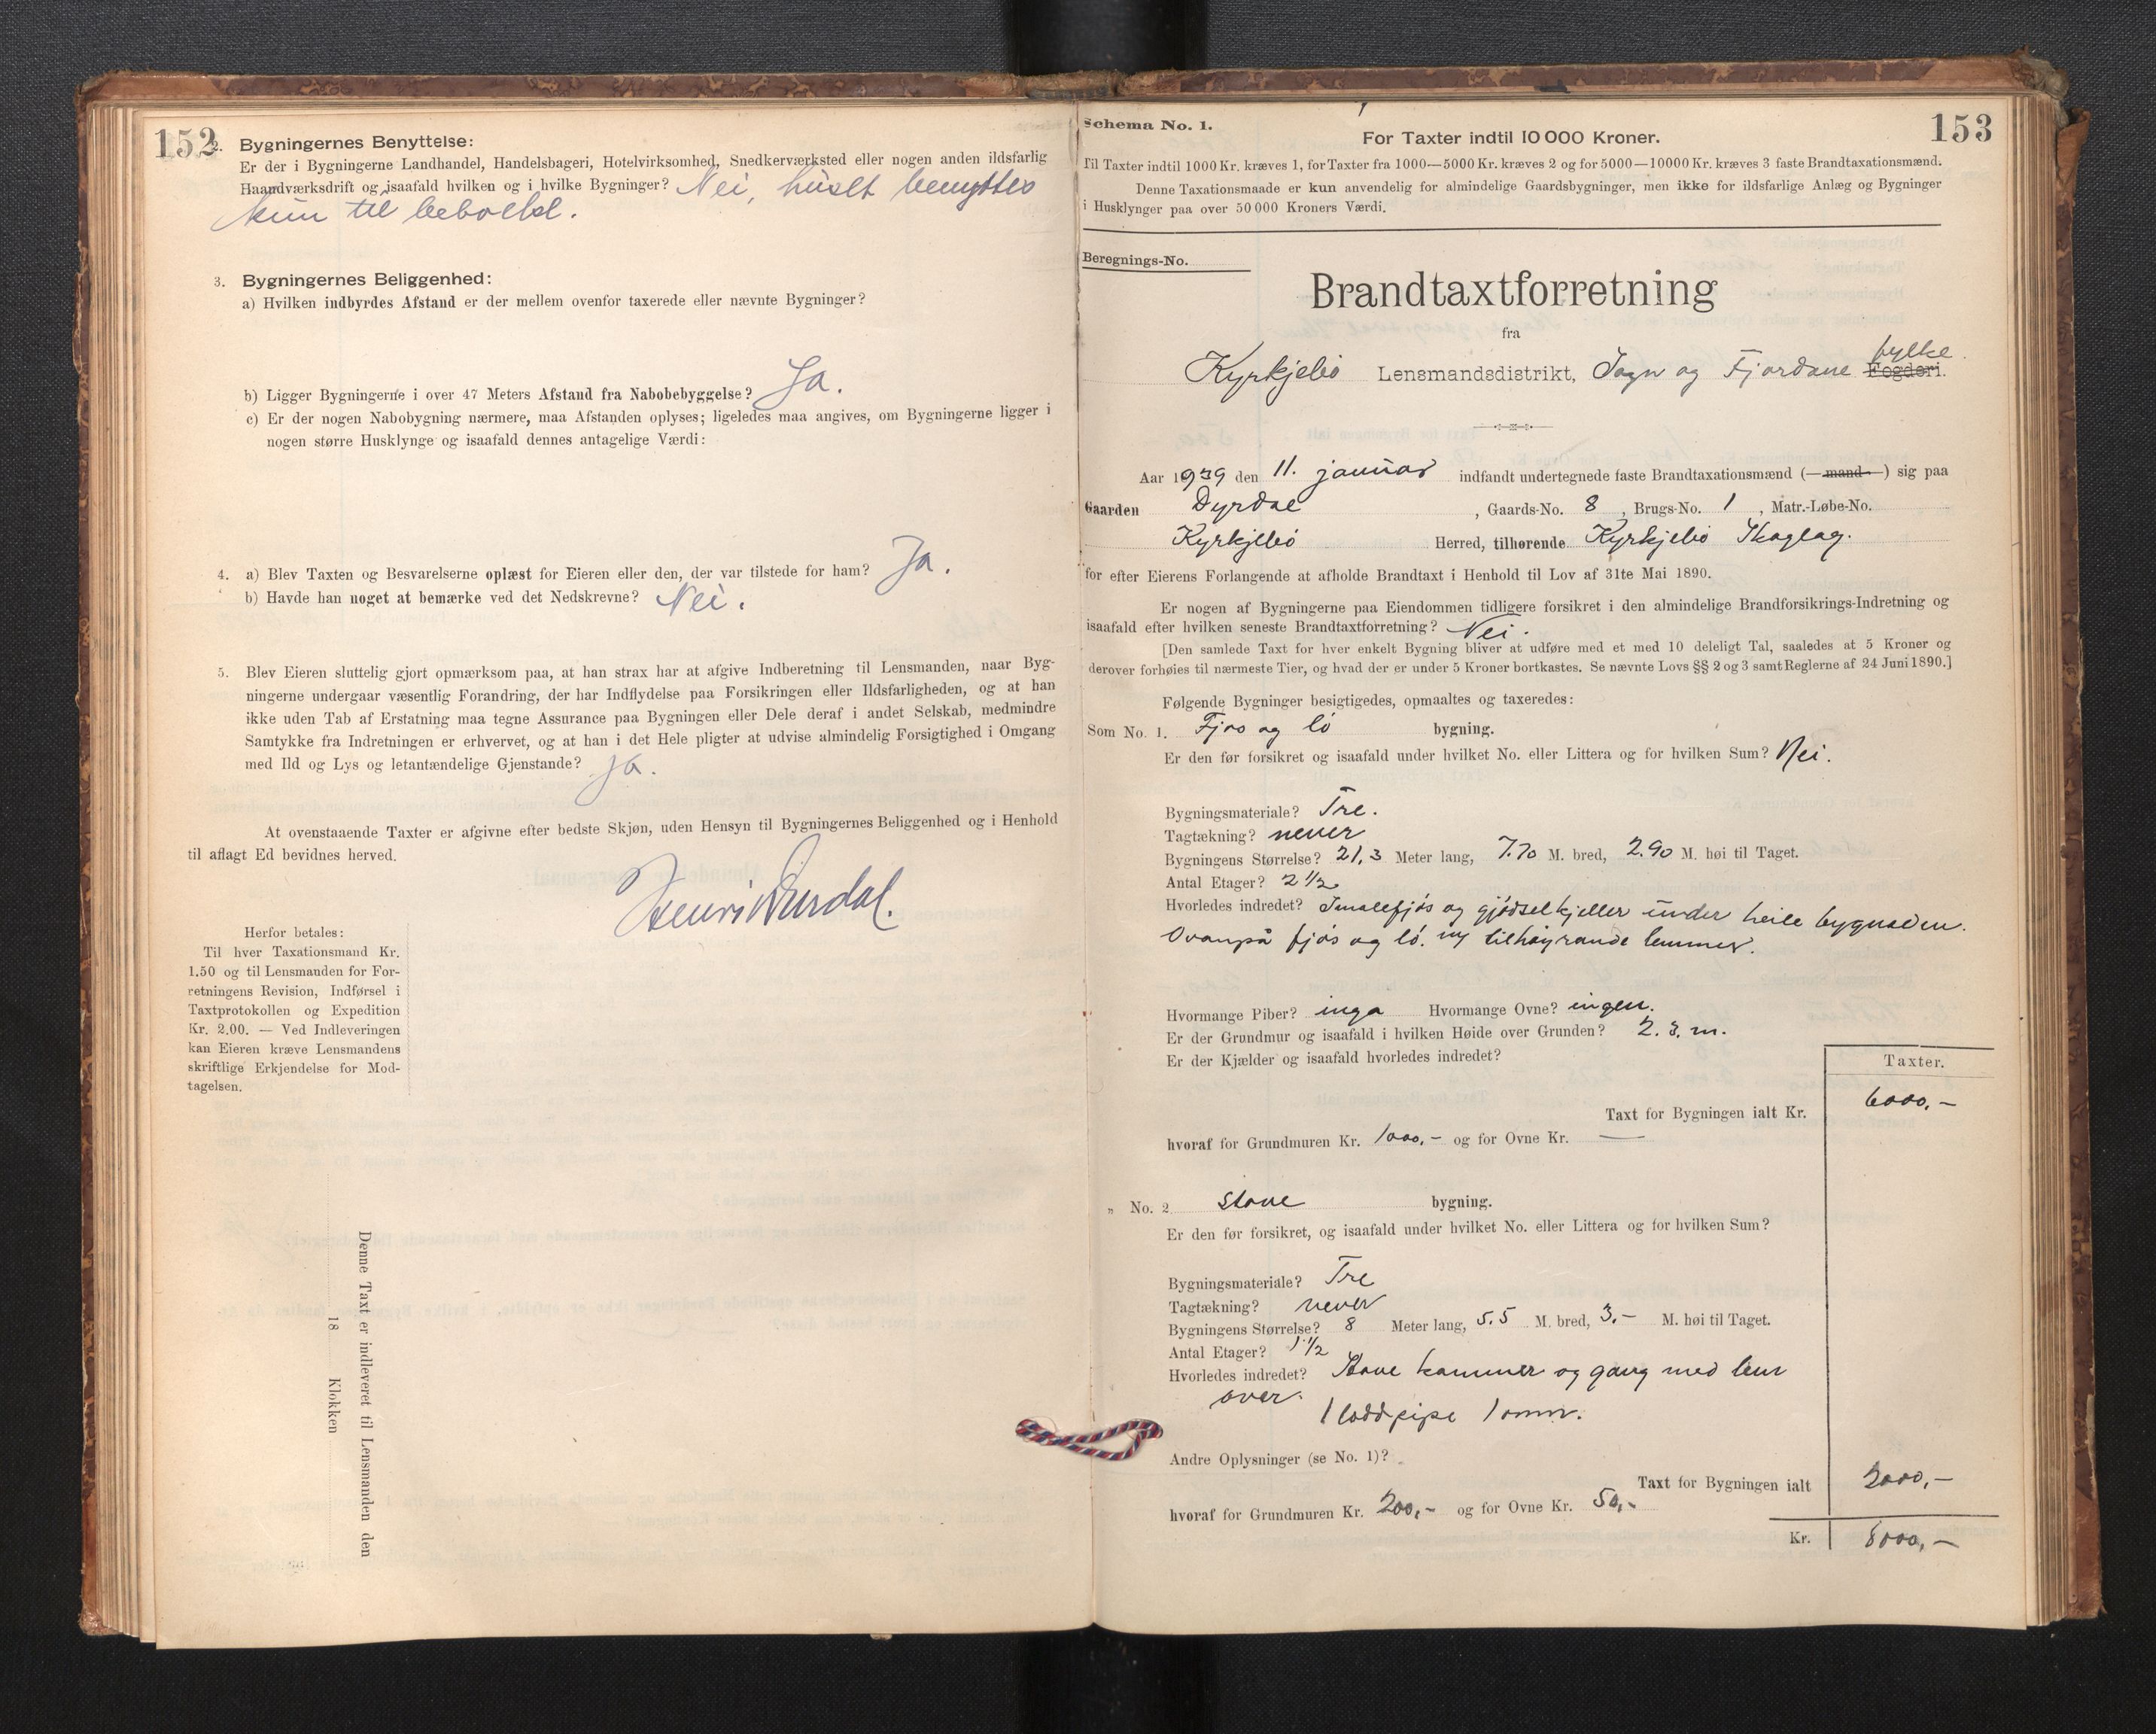 152
2. Bygningernes Benyttelse:
Er der i Bygningerne Landhandel, Handelsbageri, Hotelvirksomhed, Snedkerværksted eller nogen anden ildsfarlig
Haandværksdrift og isaafald hvilken og i hvilke Bygninger? Nei, huset benyttes
kun til bebolse.
3. Bygningernes Beliggenhed:
a) Hvilken indbyrdes Afstand er der mellem ovenfor taxerede eller nævnte Bygninger?
b) Ligger Bygningerne i over 47 Meters Afstand fra Nabobebyggelse? Ja.
c) Er der nogen Nabobygning nærmere, maa Afstanden oplyses; ligeledes maa angives, om Bygningerne ligger i
nogen større Husklynge og isaafald dennes antagelige Værdi:
4. a) Blev Taxten og Besvarelserne oplæst for Eieren eller den, der var tilstede for ham? Ja.
b) Havde han noget at bemærke ved det Nedskrevne? Nei.
5. Blev Eieren sluttelig gjort opmærksom paa, at han strax har at afgive Indberetning til Lensmanden, naar Byg-
ningerne undergaar væsentlig Forandring, der har Indflydelse paa Forsikringen eller Ildsfarligheden, og at han
ikke uden Tab af Erstatning maa tegne Assurance paa Bygningen eller Dele deraf i andet Selskab, medmindre
Samtykke fra Indretningen er erhvervet, og at han i det Hele pligter at udvise almindelig Forsigtighed i Omgang
med Ild og Lys og letantændelige Gjenstande? Ja.
At ovenstaaende Taxter er afgivne efter bedste Skjøn, uden Hensyn til Bygningernes Beliggenhed og i Henhold
til aflagt Ed bevidnes herved.
Herfor betales:
Til hver Taxationsmand Kr.
1.50 og til Lensmanden for For-
retningens Revision, Indførsel i
Taxtprotokollen og Expedition
Kr. 2.00. — Ved Indleveringen
kan Eieren kræve Lensmandens
skriftlige Erkjendelse for Mod-
tagelsen.
Denne Taxt er indleveret til Lensmanden den
18 Klokken
153
Schema No. 1.
For Taxter indtil 10 000 Kroner.
Til Taxter indtil 1000 Kr. kræves 1, for Taxter fra 1000—5000 Kr. kræves 2 og for 5000—10000 Kr. kræves 3 faste Brandtaxationsmænd.
Denne Taxationsmaade er kun anvendelig for almindelige Gaardsbygninger, men ikke for ildsfarlige Anlæg og Bygninger
i Husklynger paa over 50 000 Kroners Værdi.
Beregnings-No.
Brandtaxtforretning
fra
Kyrkjebö Lensmandsdistrikt, Sogn og Fjordane Fogderi. fylke.
Aar 1939 den 11. januar indfandt undertegnede faste Brandtaxationsmænd (— mand —) sig paa
Gaarden Dyrdal, Gaards-No. 8, Brugs-No. 1, Matr.-Løbe-No.
Kyrkjebö Herred, tilhørende Kyrkjebö Skoglag.
for efter Eierens Forlangende at afholde Brandtaxt i Henhold til Lov af 31te Mai 1890.
Er nogen af Bygningerne paa Eiendommen tidligere forsikret i den almindelige Brandforsikrings-Indretning og
isaafald efter hvilken seneste Brandtaxtforretning? Nei.
[Den samlede Taxt for hver enkelt Bygning bliver at udføre med et med 10 deleligt Tal, saaledes at 5 Kroner og
derover forhøies til nærmeste Tier, og hvad der er under 5 Kroner bortkastes. Se nævnte Lovs §§ 2 og 3 samt Reglerne af 24 Juni 1890.]
Følgende Bygninger besigtigedes, opmaaltes og taxeredes:
Som No. 1. Fjos og lö bygning.
Er den før forsikret og isaafald under hvilket No. eller Littera og for hvilken Sum? Nei.
Bygningsmateriale? Tre.
Tagtækning? never
Bygningens Størrelse? 21,3 Meter lang, 7.70 M. bred, 2.90 M. høi til Taget.
Antal Etager? 2 1/2
Hvorledes indredet? Smalefjös og gjödselkjeller under heile bygnaden.
Ovanpå fjös og lö. og tilhøyrande lemmer.
Hvormange Piber? inga Hvormange Ovne? ingen.
Er der Grundmur og isaafald i hvilken Høide over Grunden? 2.3. m.
Er der Kjælder og isaafald hvorledes indredet?
Taxter.
Taxt for Bygningen ialt Kr. 6000,-
hvoraf for Grundmuren Kr. 1000,- og for Ovne Kr. —
„ No. 2 stove bygning.
Er den før forsikret, og isaafald under hvilket No. eller Littera og for hvilken Sum?
Bygningsmateriale? Tre
Tagtækning? never
Bygningens Størrelse? 8 Meter lang, 5.5 M. bred, 3.- M. høi til Taget.
Antal Etager? 1 1/2
Hvorledes indredet? Stove kammer og gang med lem
over.
1 loddpipe 1 omn.
Andre Oplysninger (se No. 1)?
Taxt for Bygningen ialt 2000,-
hvoraf for Grundmuren Kr. 200,- og for Ovne Kr. 50,-
Kr. 8000,-